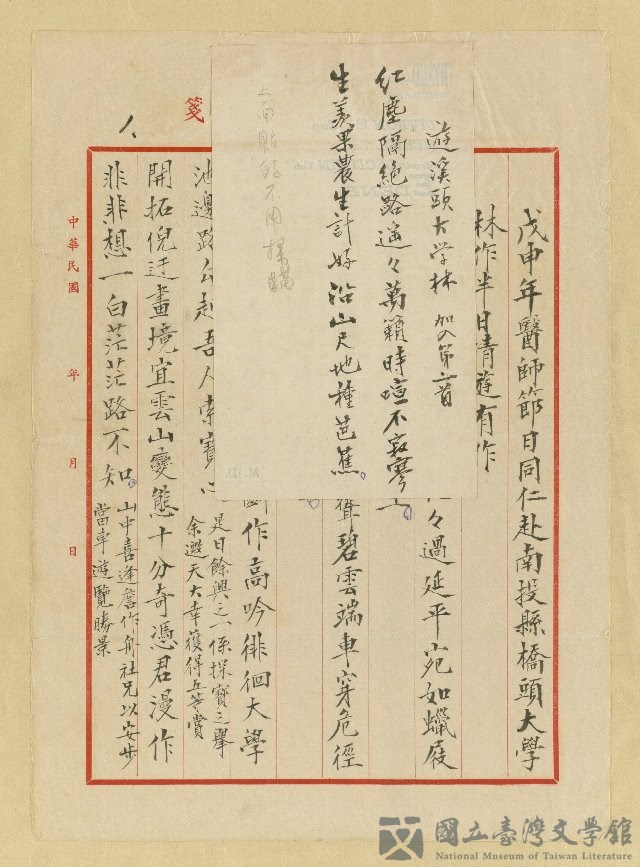 戊申年醫師節日同仁赴南投縣橋頭大學
林作半日清遊有作
遊溪頭大学林 加入第二首
紅塵隔絕路遙々萬籟時喧不寂寥
生羨果農生計好沿山尺地種芭蕉
上面貼的不用
々過延平宛如蠟屐
聳碧雲端車穿危徑
作高吟徘徊大學
是日餘興之一係探寶之舉
余邀天大幸獲得五等賞
池邊路公赴吾人索寶心
開拓倪迂畫境宜雲山變態十分奇憑君漫作
非非想一白茫茫路不知
山中喜逢詹作舟社兄以安步
當車遊覽勝景
箋
中華民國 年 月 日
國立臺灣文學館
National Museum of Taiwan Literature